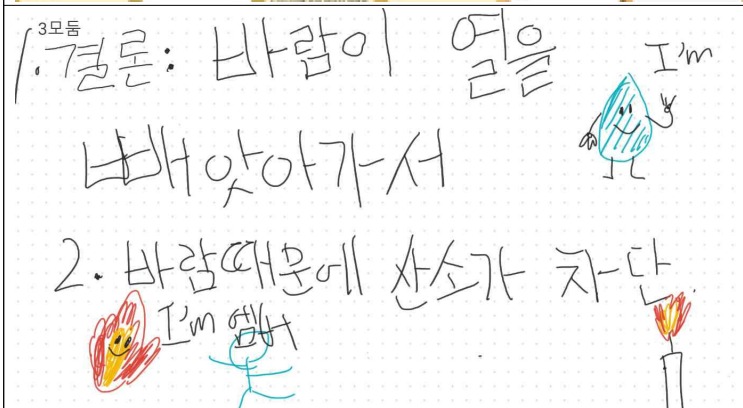 3모둠
1.결론: 바람이 열을
I'm
빼앗아가서
2. 바람때문에 산소가 차단.
I'm 엠버